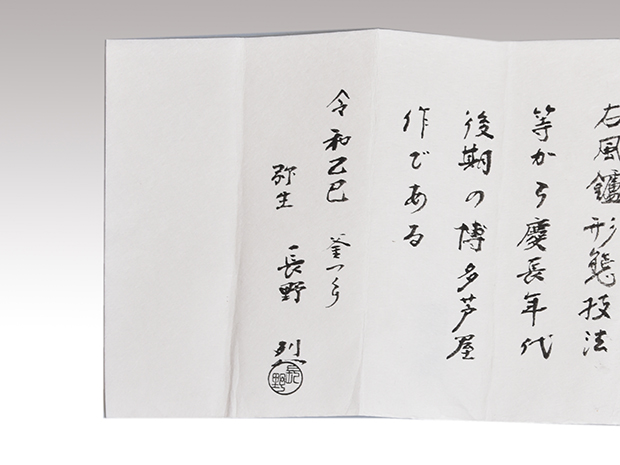 右風鑪形態技法
等から慶長年代
後期の博多芦屋
作である
令和乙巳 釜
弥生 長野 烈
長野